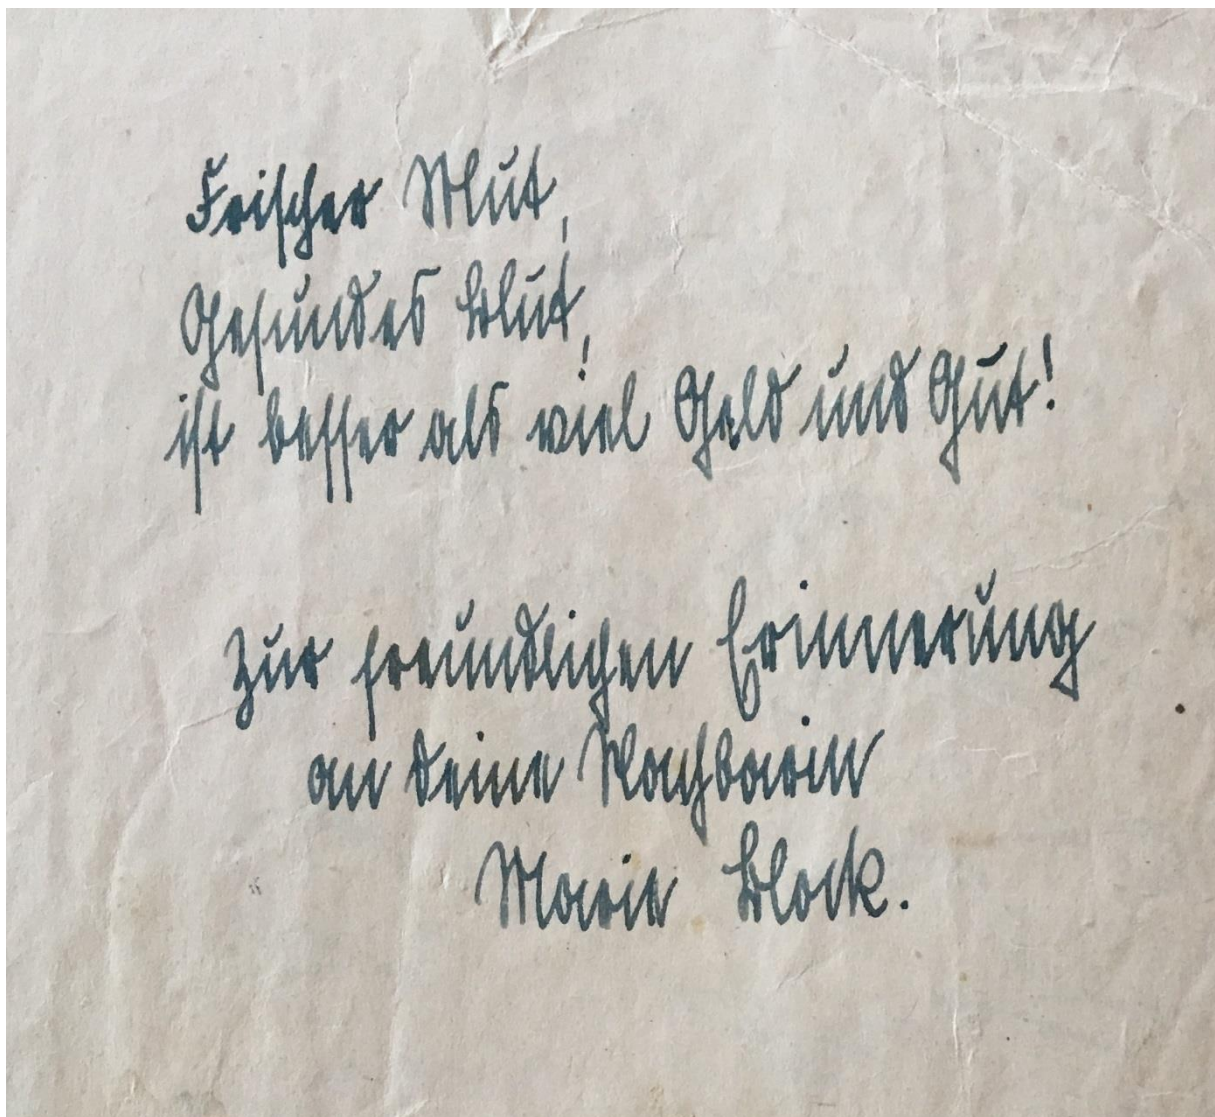 Frischer Mut,
Gesundes Blut,
ist besser als viel Geld und Gut!
Zur freundlichen Erinnerung
an deine Nachbarin
Marie Block.